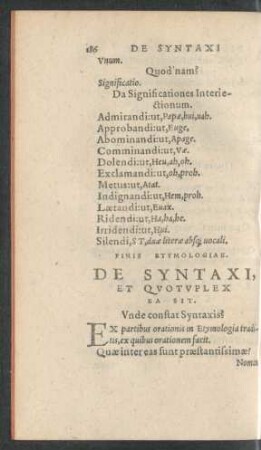 186 DE SYNTAXI
Vnum.
Quod'nam?
Significatio.
Da Significationes Interie-
ctionum.
Admirandi: ut, Papæ, hui, uah.
Approbandi: ut, Euge.
Abominandi: ut, Apage.
Comminandi: ut, Væ.
Dolendi: ut, Heu, ah, oh.
Exclamandi: ut, oh, proh.
Metus: ut, Atat.
Indignandi: ut, Hem, proh.
Lætandi: ut, Euax.
Ridendi: ut, Ha, ha, he.
Irridendi: ut, Hui.
Silendi, ST, duæ literæ absq; uocali.
FINIS ETYMOLOGIAE.
DE SYNTAXI,
ET QVOTVPLEX
EA SIT.
Vnde constat Syntaxis?
EX partibus orationis in Etymologia tradi-
tis, ex quibus orationem facit.
Quæ inter eas sunt præstantissimæ?
Nomen